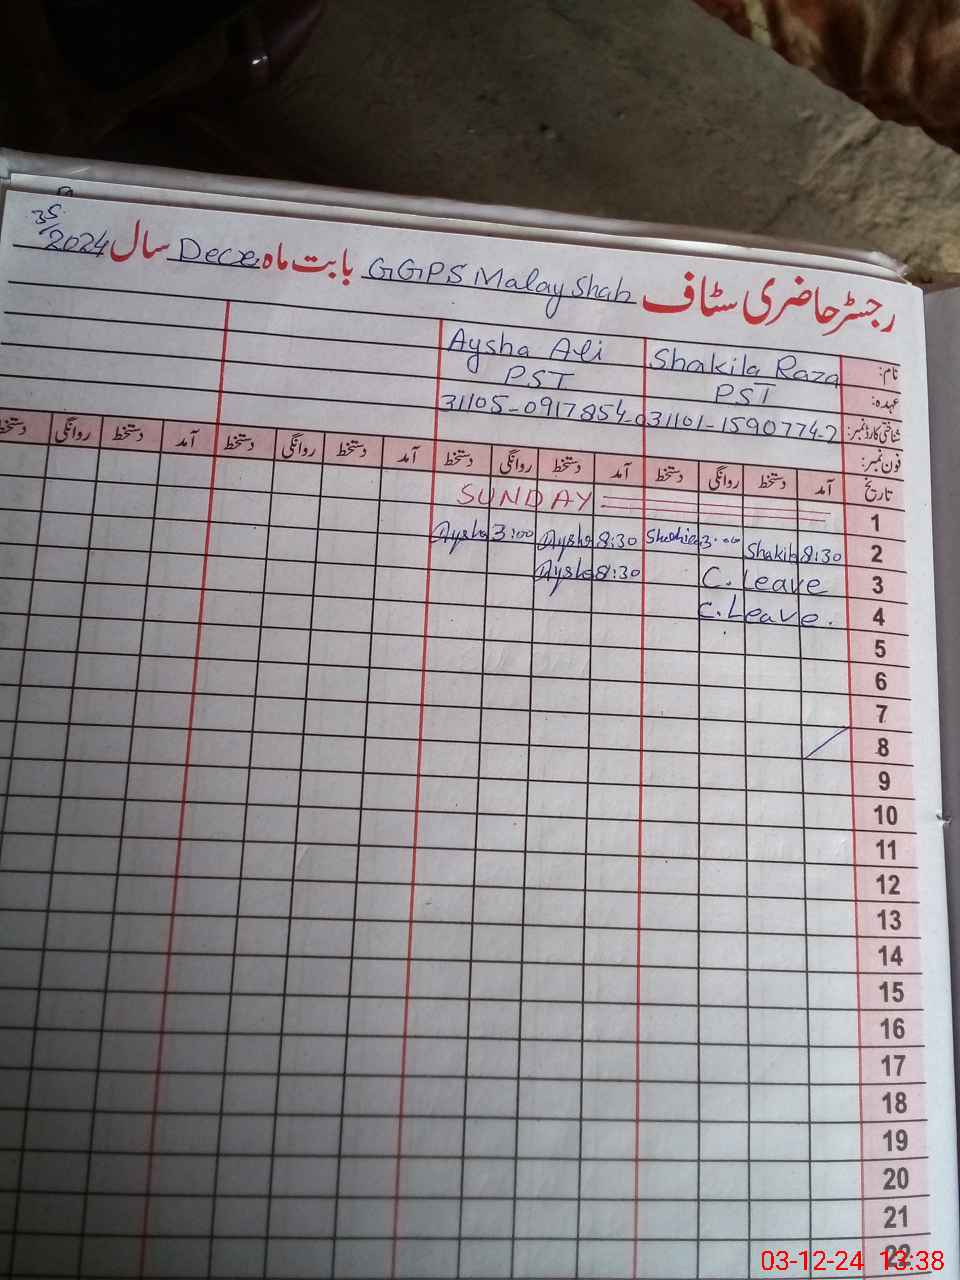 رجسٹر حاضری سٹاف GGPS Malay Shah بابت ماہ Dece سال 2024
35
نام: Shakila Raza Aysha Ali
عہدہ: PST PST
شناختی کارڈ نمبر: 31101-1590774-2 31105-0917854-0
فون نمبر:
تاریخ آمد دستخط روانگی دستخط آمد دستخط روانگی دستخط آمد دستخط روانگی دستخط آمد دستخط روانگی دستخط
1 SUNDAY
2 8:30 Shakila 3:00 8:30 Aysha 3:00 Aysha
3 C. Leave 8:30 Aysha
4 C. Leave.
5
6
7
8
9
10
11
12
13
14
15
16
17
18
19
20
21
22
03-12-24 13:38